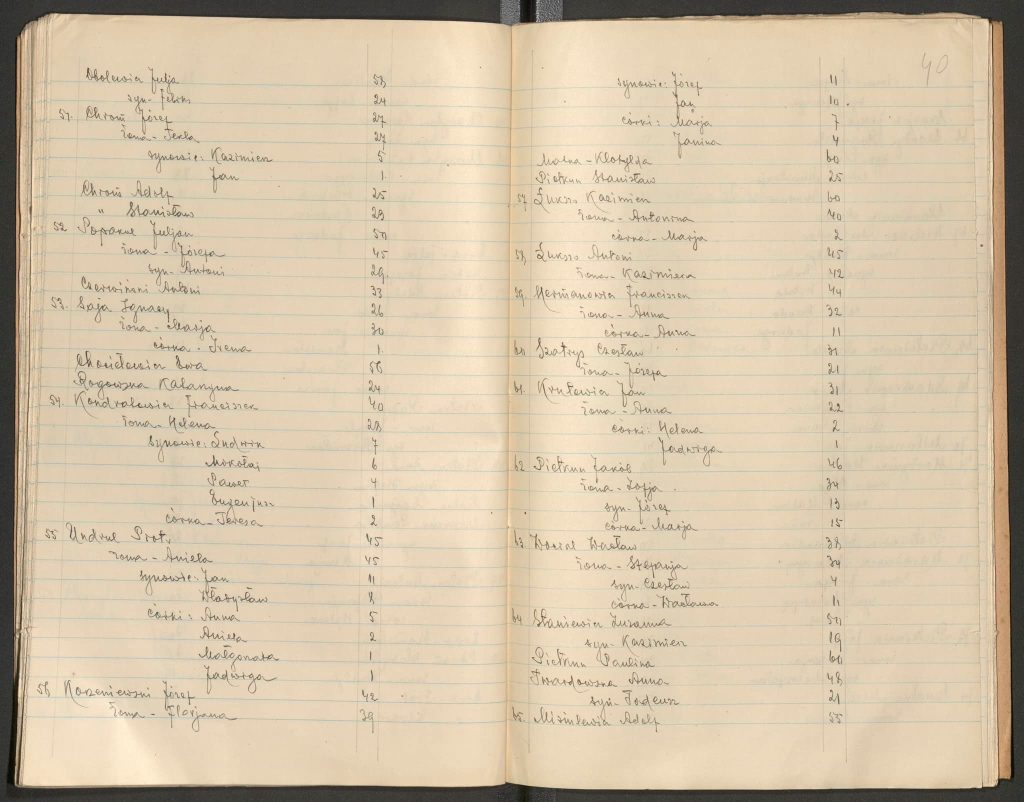 Obolewicz Julja 58
syn - Feliks 24
51. Chroń Józef 27
żona - Tekla 27
synowie: Kazimierz 5
Jan 1
Chroń Adolf 25
" Stanisław 23
52 Juljan 50
żona - Józefa 45
syn - Antoni 29
Czerwiński Antoni 33
53. Saja Ignacy 26
żona - Marja 30
córka - Irena 1
Ewa 56
Rogowska Katarzyna 24
54. Kondratowicz Franciszek 40
żona - Helena 28
synowie: Ludwik 7
Mikołaj 6
Paweł 4
Eugenjusz 1
córka - Teresa 2
55 Undrul Piotr 45
żona - Aniela 45
synowie: Jan 11
Władysław 8
córki: Anna 5
Aniela 2
Małgorzata 1
Jadwiga 1
56 Korzeniewski Józef 42
żona - Florjana 39
40
synowie: Józef 11
Jan 10
córki: Marja 7
Janina 4
Matka - Klotylda 60
Pietkun Stanisław 25
57 Łukszo Kazimierz 60
żona - Antonina 40
córka - Marja 2
58 Łukszo Antoni 45
żona - Kazimiera 42
59. Hermanowicz Franciszek 44
żona - Anna 32
córka - Anna 11
60 Szatrys Czesław 31
żona - Józefa 21
61. Krutowicz Jan 31
żona - Anna 22
córki: Helena 2
Jadwiga 1
62 Pietkun Jakób 46
żona - Zofja 34
syn - Józef 13
córka - Marja 15
63 Wacław 38
żona - Stefanja 34
syn - Czesław 4
córka - Wacława 11
64 Staniewicz Zuzanna 50
syn - Kazimierz 19
Pietkun Paulina 60
Twardowska Anna 48
syn - Tadeusz 21
65. Adolf 55